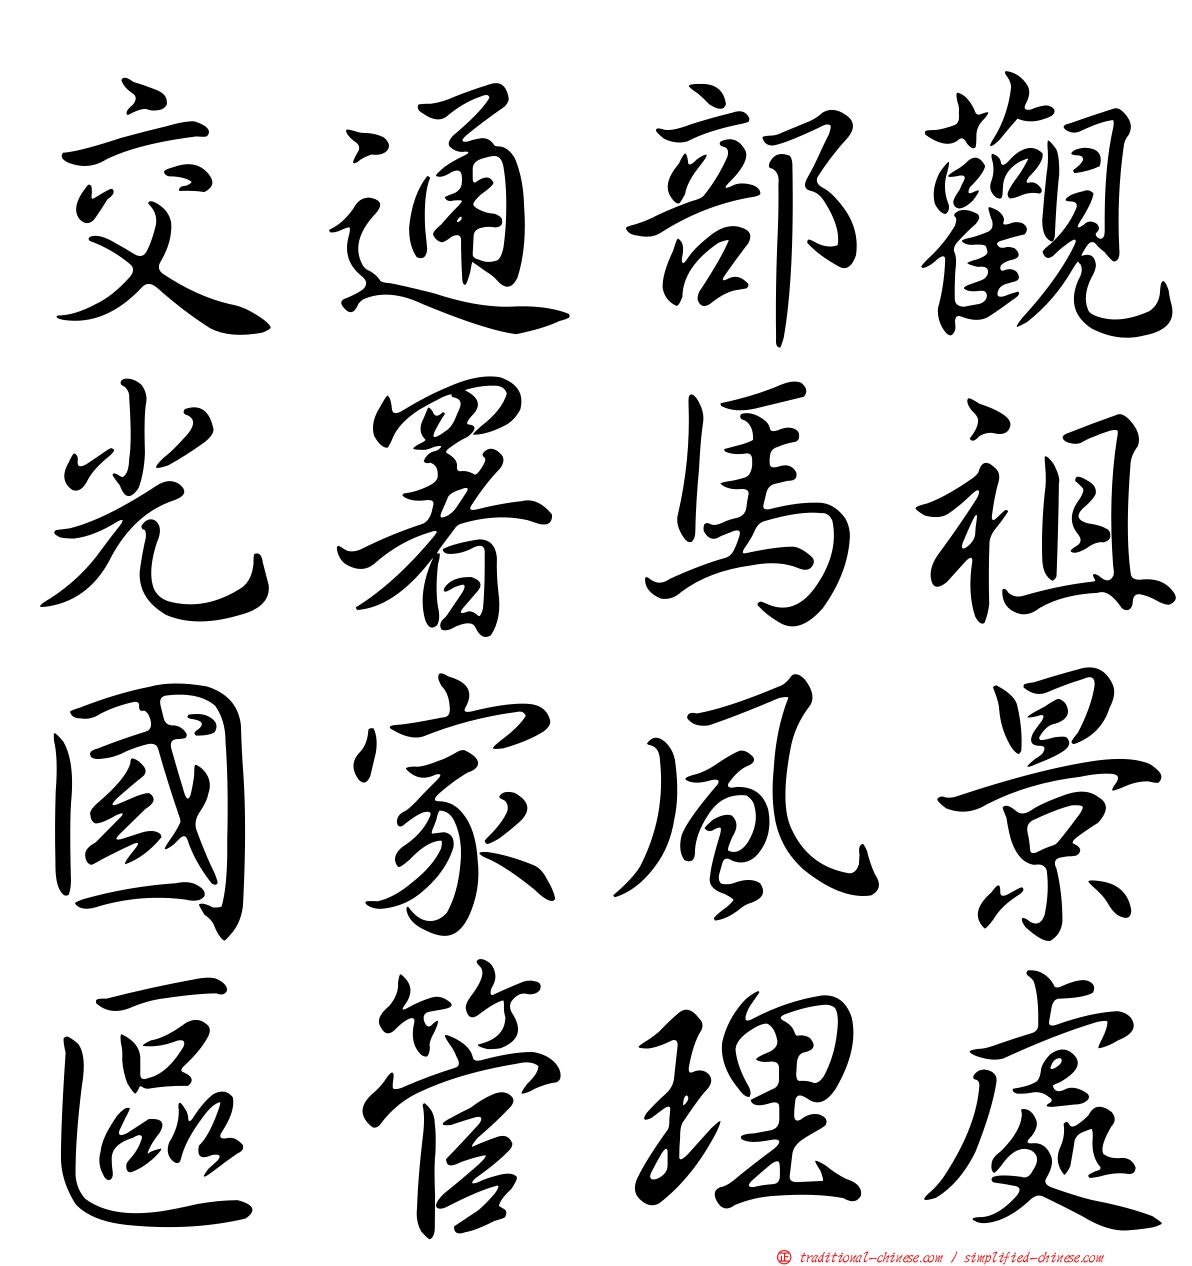 交通部觀
光署馬祖
國家風景
區管理處
正 traditional-chinese.com / simplified-chinese.com